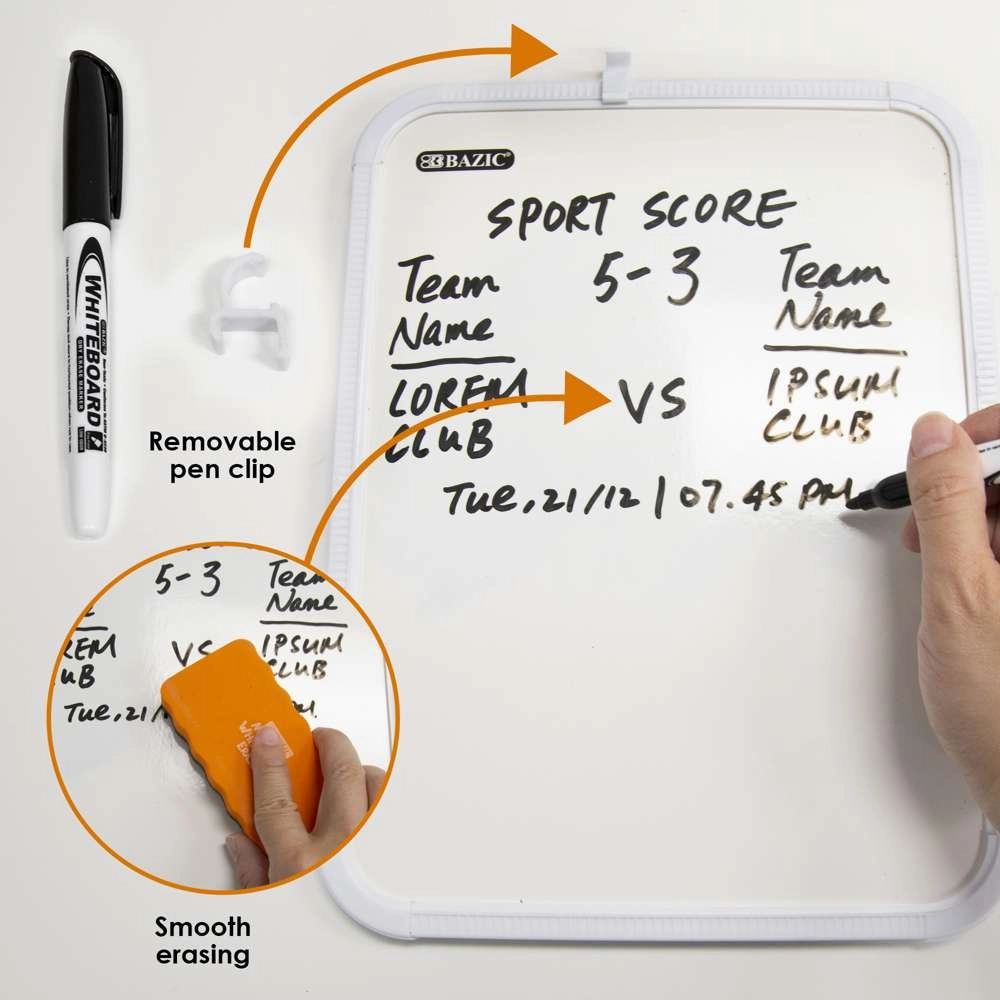 BAZIC
SPORT SCORE
5-3
Team
Name
LOREM
CLUB
VS
Team
Name
IPSUM
CLUB
Tue, 21/12 | 07.45 PM
WHITEBOARD
DRY ERASE MARKER
Removable
pen clip
5-3
Team
Name
REM
UB
VS
IPSUM
CLUB
Tue, 21/
Smooth
erasing